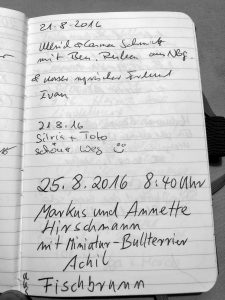 21.8.2016
Ulrich + Carmen Schmidt
mit Ben. Ruben aus Nbg.
& unser syrischer Freund
Ivan
21.8.16
Silvia + Tobo
schöner Weg ☺
25.8.2016 8:40 Uhr
Markus und Annette
Hirschmann
mit Miniatur-Bullterrier
Achil
Fischbrunn